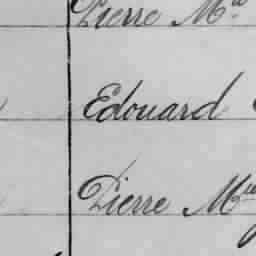 Pierre Mie
Edouard
Pierre Mie